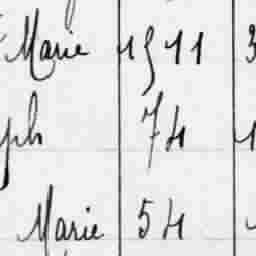 Marie 1911 3
ph 74 1
Marie 54